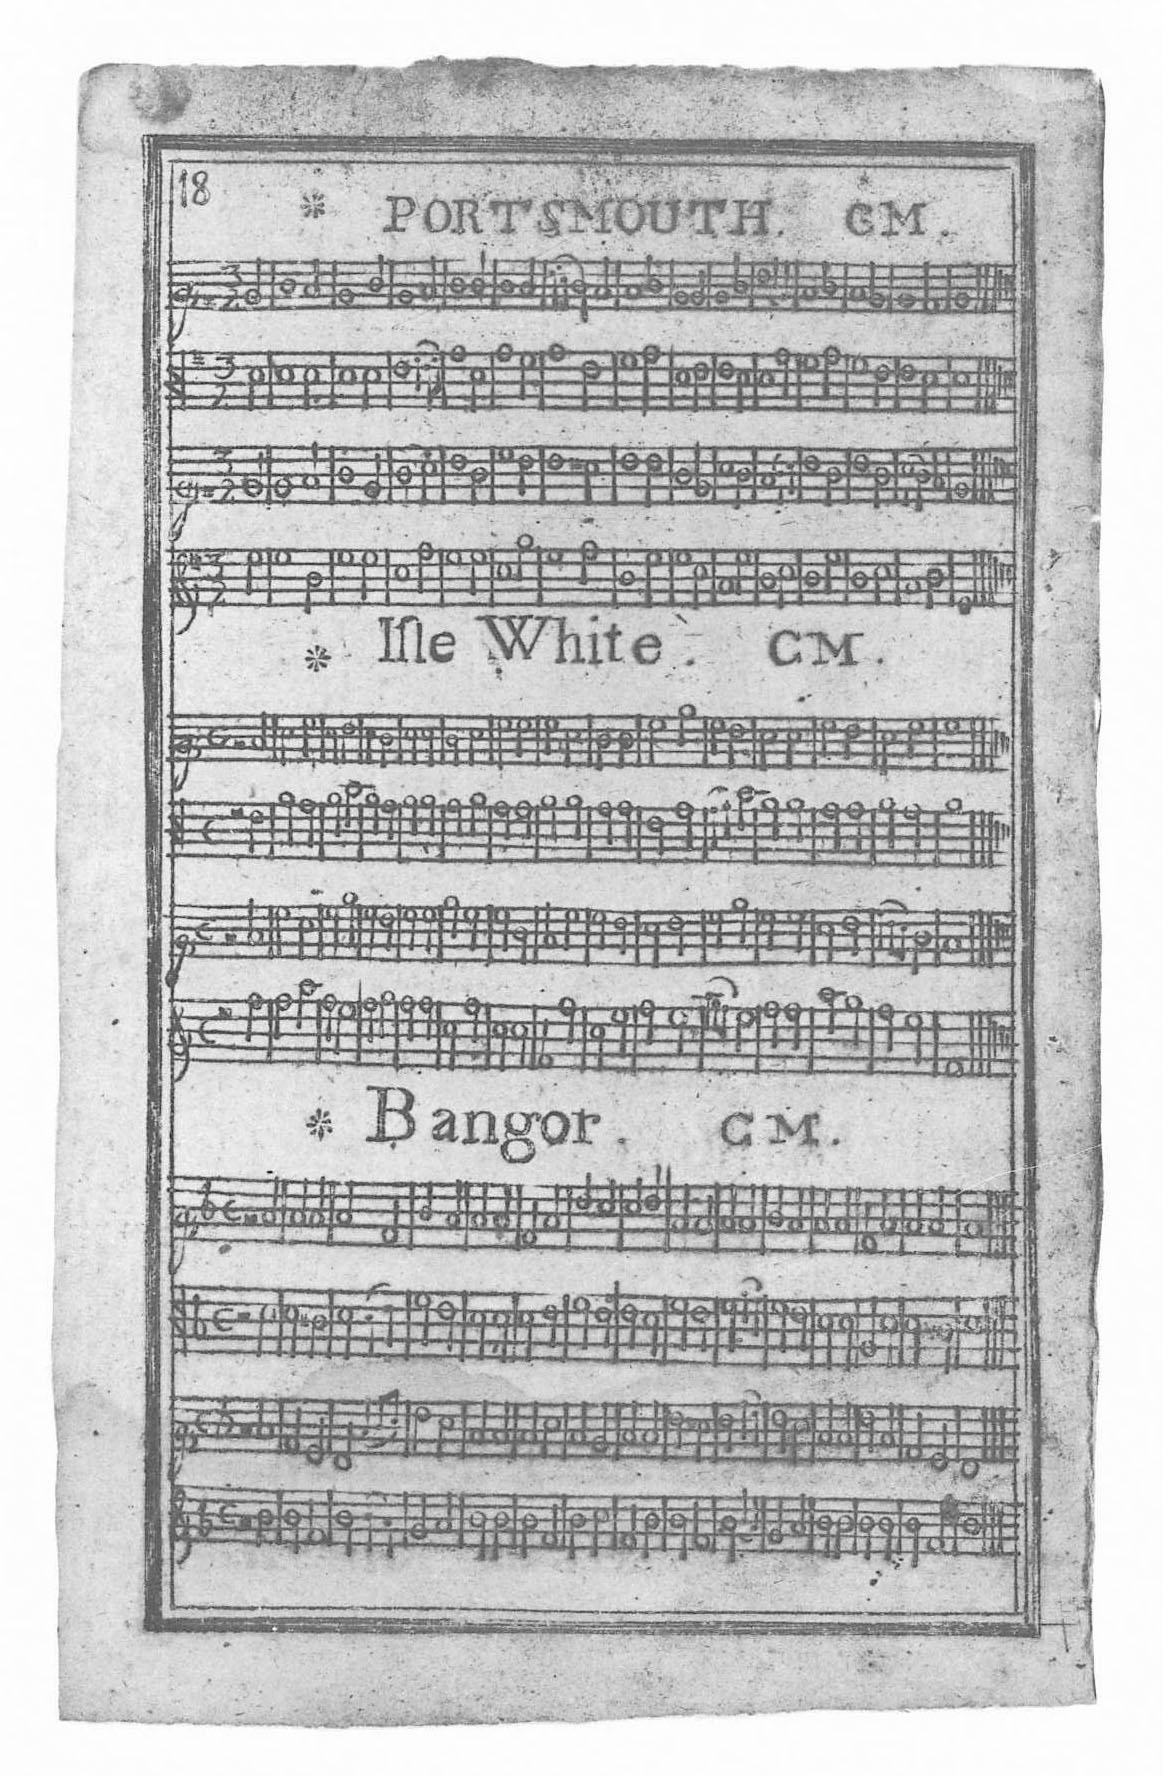 18
* PORTSMOUTH. CM.
* Iſle White. CM.
* Bangor. CM.